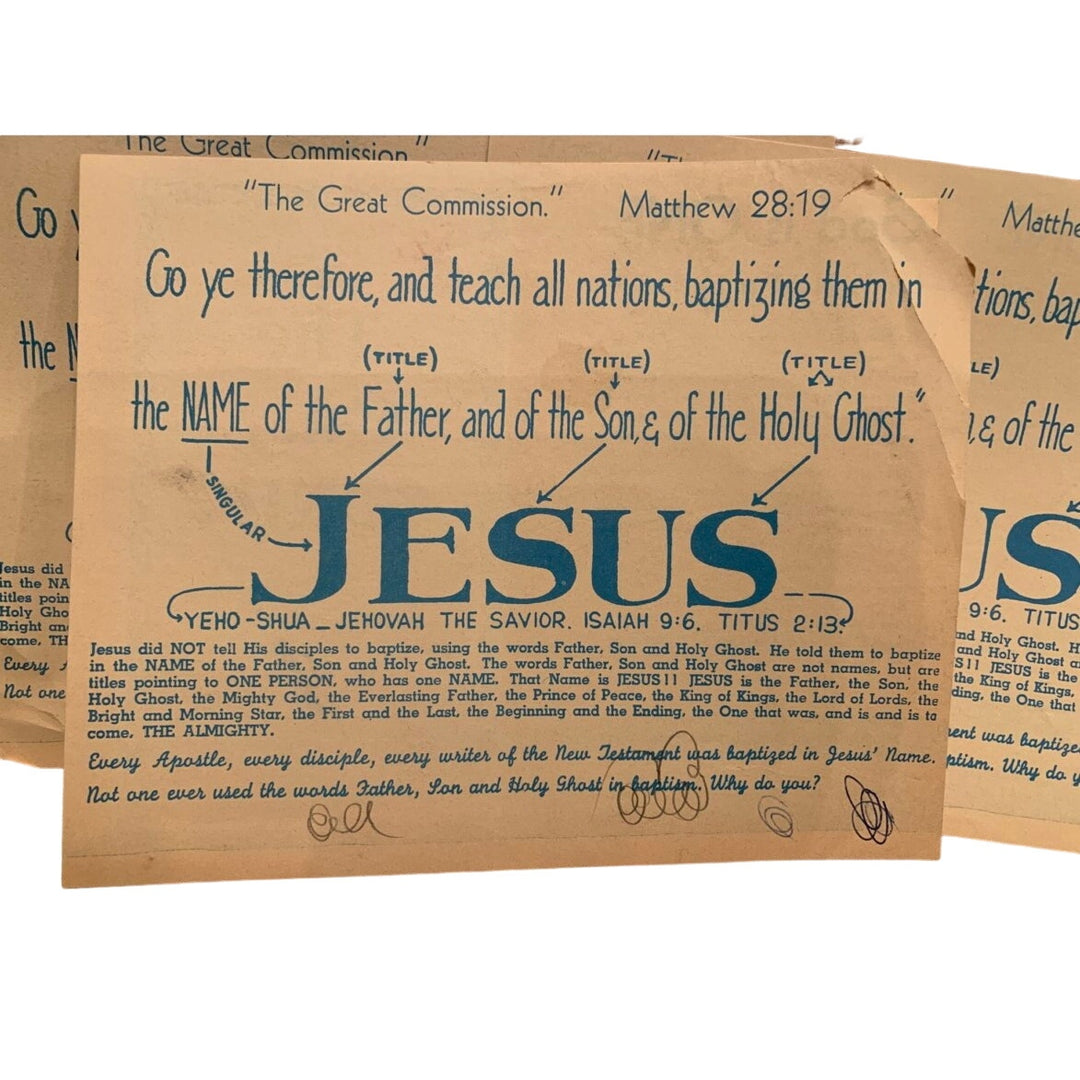 "The Great Commission." Matthew 28:19
Go ye therefore, and teach all nations, baptizing them in
(TITLE) (TITLE) (TITLE)
the NAME of the Father, and of the Son, & of the Holy Ghost."
SINGULAR
JESUS
YEHO-SHUA_JEHOVAH THE SAVIOR. ISAIAH 9:6. TITUS 2:13.
Jesus did NOT tell His disciples to baptize, using the words Father, Son and Holy Ghost. He told them to baptize
in the NAME of the Father, Son and Holy Ghost. The words Father, Son and Holy Ghost are not names, but are
titles pointing to ONE PERSON, who has one NAME. That Name is JESUS!! JESUS is the Father, the Son, the
Holy Ghost, the Mighty God, the Everlasting Father, the Prince of Peace, the King of Kings, the Lord of Lords, the
Bright and Morning Star, the First and the Last, the Beginning and the Ending, the One that was, and is and is to
come, THE ALMIGHTY.
Every Apostle, every disciple, every writer of the New Testament was baptized in Jesus' Name.
Not one ever used the words Father, Son and Holy Ghost in baptism. Why do you?
The Great Commission"
Go
the
Jesus did
in the NA
titles poin
Holy Gho
Bright an
come, TH
Every
Not one
" Matthe
tions, bap
LE)
& of the
US
9:6. TITUS
and Holy Ghost. H
and Holy Ghost a
S!! JESUS is the
the King of Kings,
ding, the One that
ent was baptize
ptism. Why do y